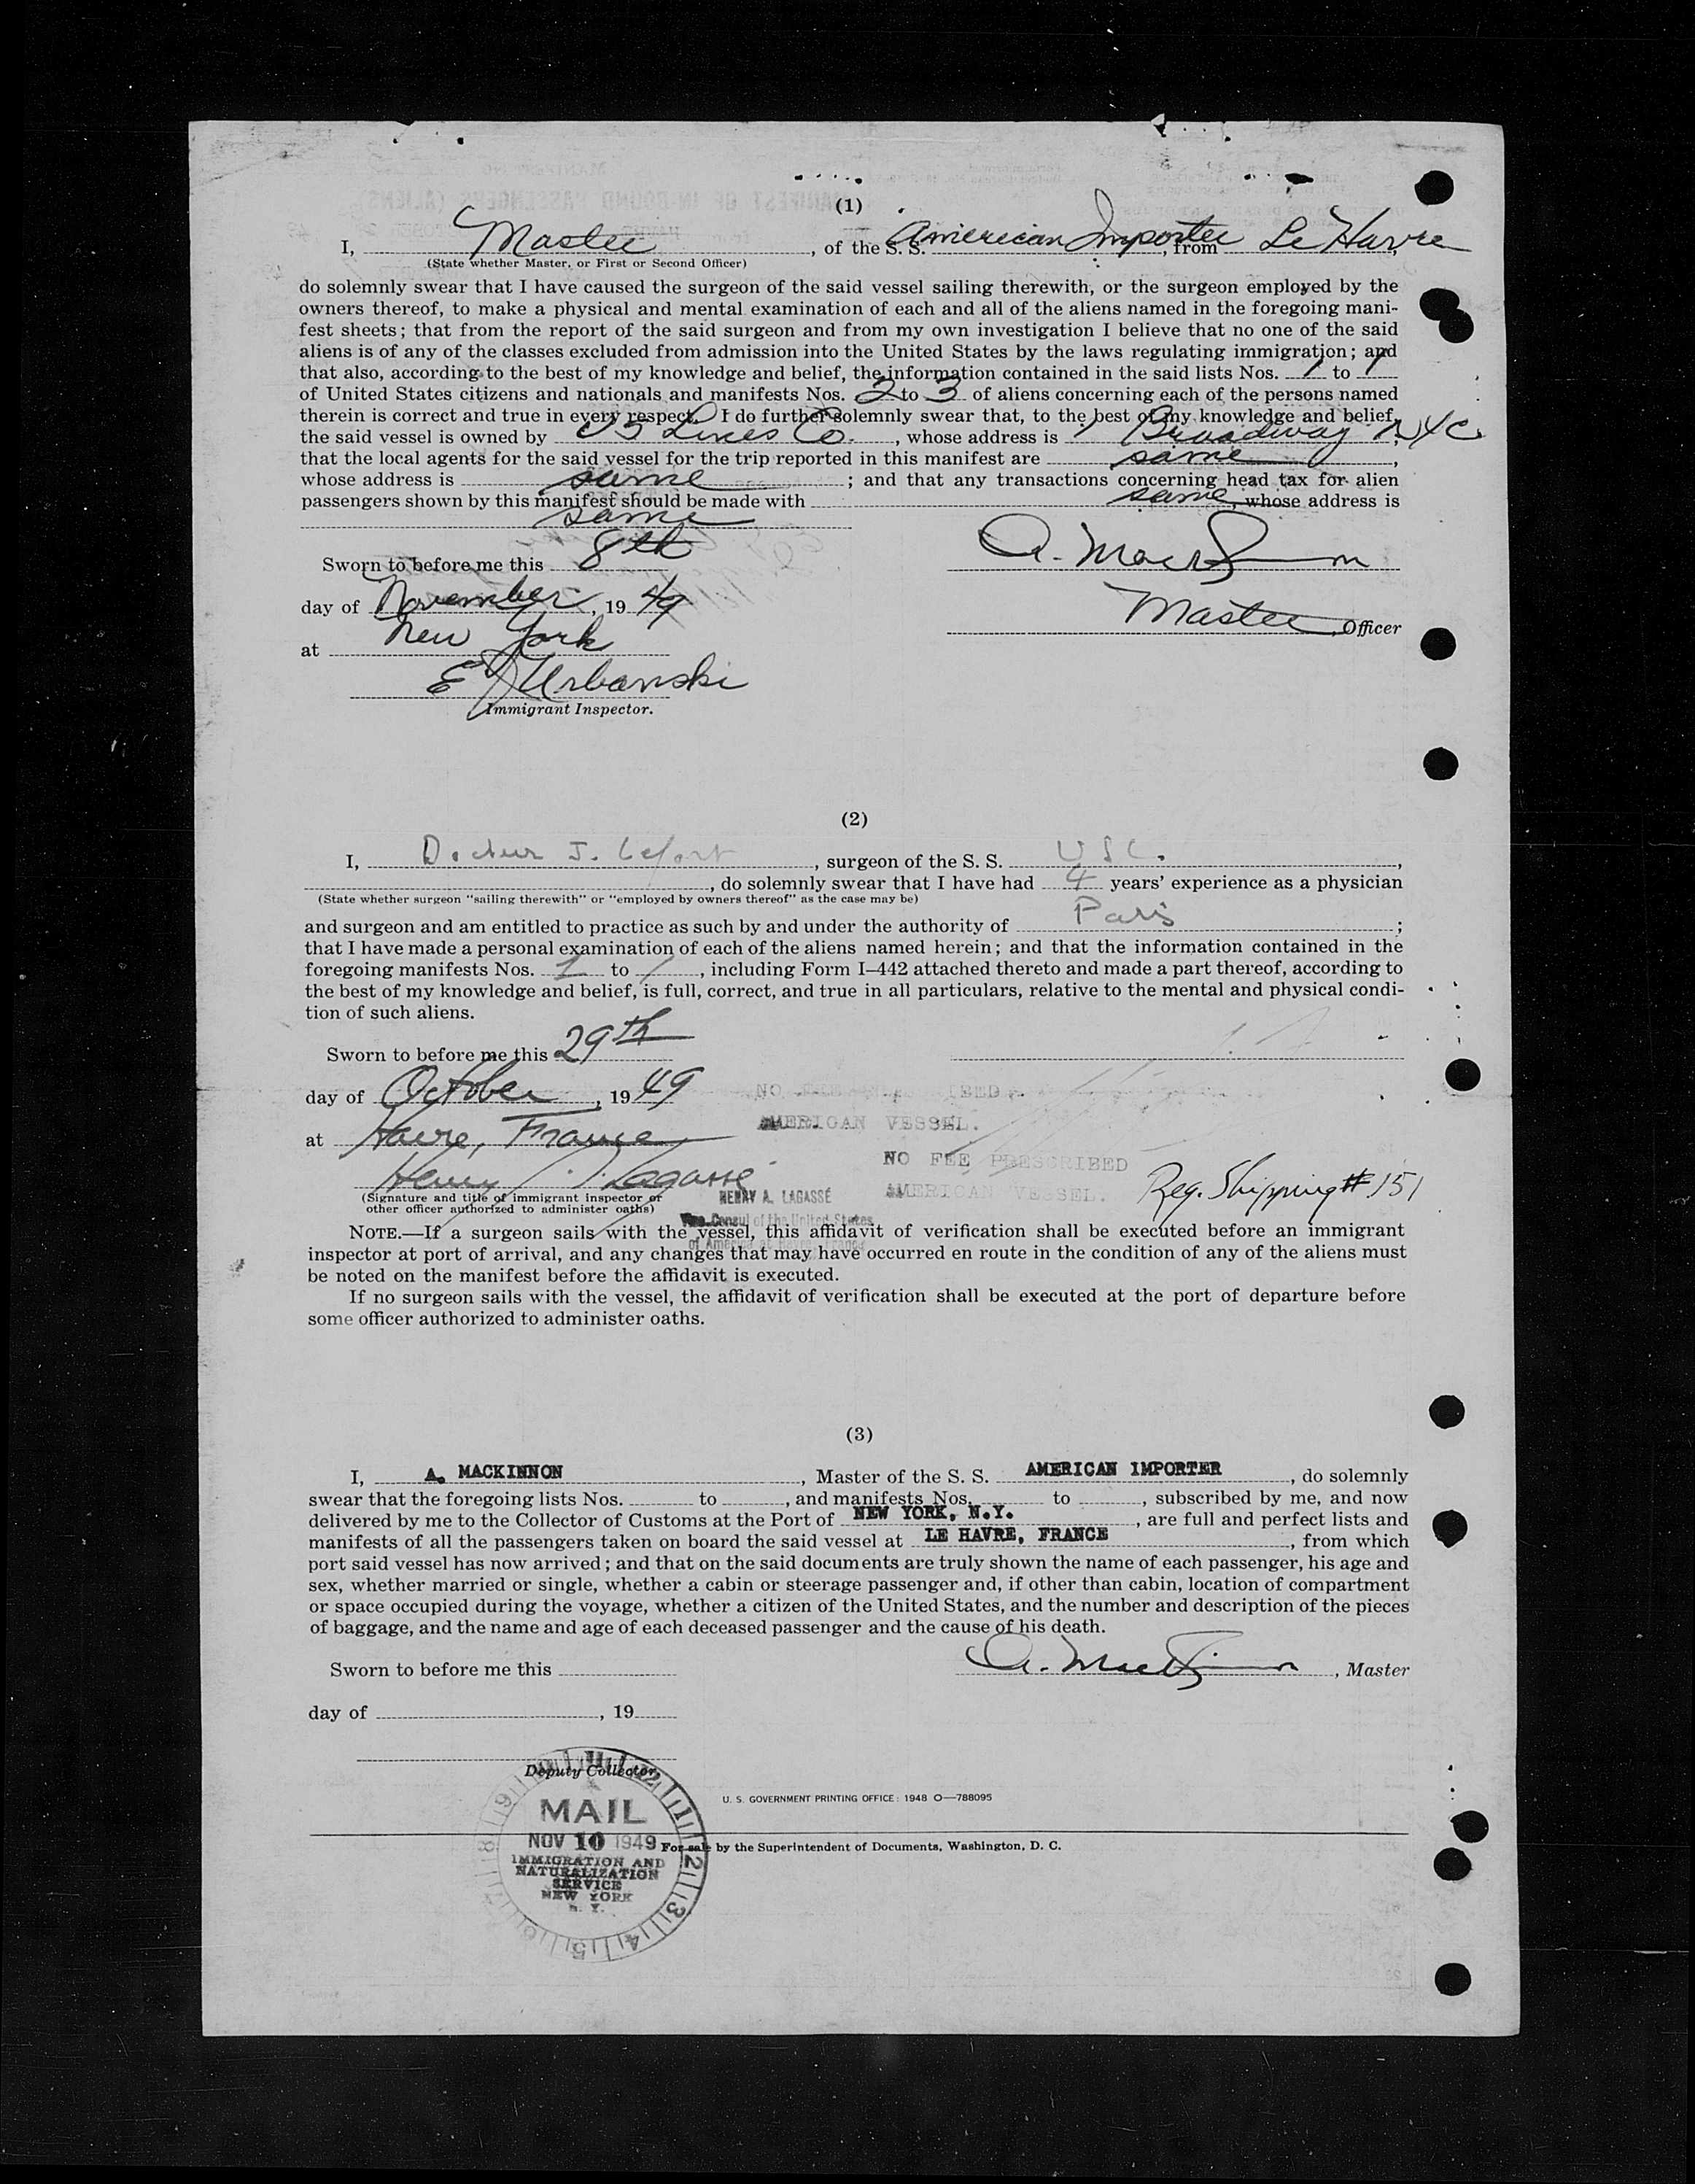 (1)
I, Master, of the S. S. American Importer, from Le Havre,
(State whether Master, or First or Second Officer)
do solemnly swear that I have caused the surgeon of the said vessel sailing therewith, or the surgeon employed by the
owners thereof, to make a physical and mental examination of each and all of the aliens named in the foregoing mani-
fest sheets; that from the report of the said surgeon and from my own investigation I believe that no one of the said
aliens is of any of the classes excluded from admission into the United States by the laws regulating immigration; and
that also, according to the best of my knowledge and belief, the information contained in the said lists Nos. 1 to 1
of United States citizens and nationals and manifests Nos. 2 to 3 of aliens concerning each of the persons named
therein is correct and true in every respect. I do further solemnly swear that, to the best of my knowledge and belief,
the said vessel is owned by US Lines Co., whose address is 1 Broadway NYC,
that the local agents for the said vessel for the trip reported in this manifest are same,
whose address is same; and that any transactions concerning head tax for alien
passengers shown by this manifest should be made with same, whose address is
same
Sworn to before me this 8th
A. MacKinnon
day of November, 1949
Master, Officer
at New York
E J Urbanski
Immigrant Inspector.
(2)
I, Docteur J. Lefort, surgeon of the S. S. USL.,
, do solemnly swear that I have had 4 years' experience as a physician
(State whether surgeon "sailing therewith" or "employed by owners thereof" as the case may be)
and surgeon and am entitled to practice as such by and under the authority of Paris;
that I have made a personal examination of each of the aliens named herein; and that the information contained in the
foregoing manifests Nos. 1 to 1, including Form I-442 attached thereto and made a part thereof, according to
the best of my knowledge and belief, is full, correct, and true in all particulars, relative to the mental and physical condi-
tion of such aliens.
Sworn to before me this 29th
day of October, 1949
NO
AMERICAN VESSEL.
at Havre, France
NO FEE PRESCRIBED
AMERICAN VESSEL.
Reg. Shipping # 151
Henry Lagassé
(Signature and title of immigrant inspector or
other officer authorized to administer oaths)
HENRY A. LAGASSÉ
Vice Consul of the United States
of America at Havre, France
NOTE.—If a surgeon sails with the vessel, this affidavit of verification shall be executed before an immigrant
inspector at port of arrival, and any changes that may have occurred en route in the condition of any of the aliens must
be noted on the manifest before the affidavit is executed.
If no surgeon sails with the vessel, the affidavit of verification shall be executed at the port of departure before
some officer authorized to administer oaths.
(3)
I, A. MACKINNON, Master of the S. S. AMERICAN IMPORTER, do solemnly
swear that the foregoing lists Nos. to , and manifests Nos. to , subscribed by me, and now
delivered by me to the Collector of Customs at the Port of NEW YORK, N.Y., are full and perfect lists and
manifests of all the passengers taken on board the said vessel at LE HAVRE, FRANCE, from which
port said vessel has now arrived; and that on the said documents are truly shown the name of each passenger, his age and
sex, whether married or single, whether a cabin or steerage passenger and, if other than cabin, location of compartment
or space occupied during the voyage, whether a citizen of the United States, and the number and description of the pieces
of baggage, and the name and age of each deceased passenger and the cause of his death.
Sworn to before me this
A. MacKinnon, Master
day of , 19
Deputy Collector.
MAIL
NOV 10 1949
IMMIGRATION AND
NATURALIZATION
SERVICE
NEW YORK
N. Y.
U. S. GOVERNMENT PRINTING OFFICE: 1948 O—788095
For sale by the Superintendent of Documents, Washington, D. C.